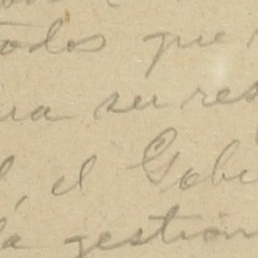 todos que
ra su res
l, el Gobi
la gestión